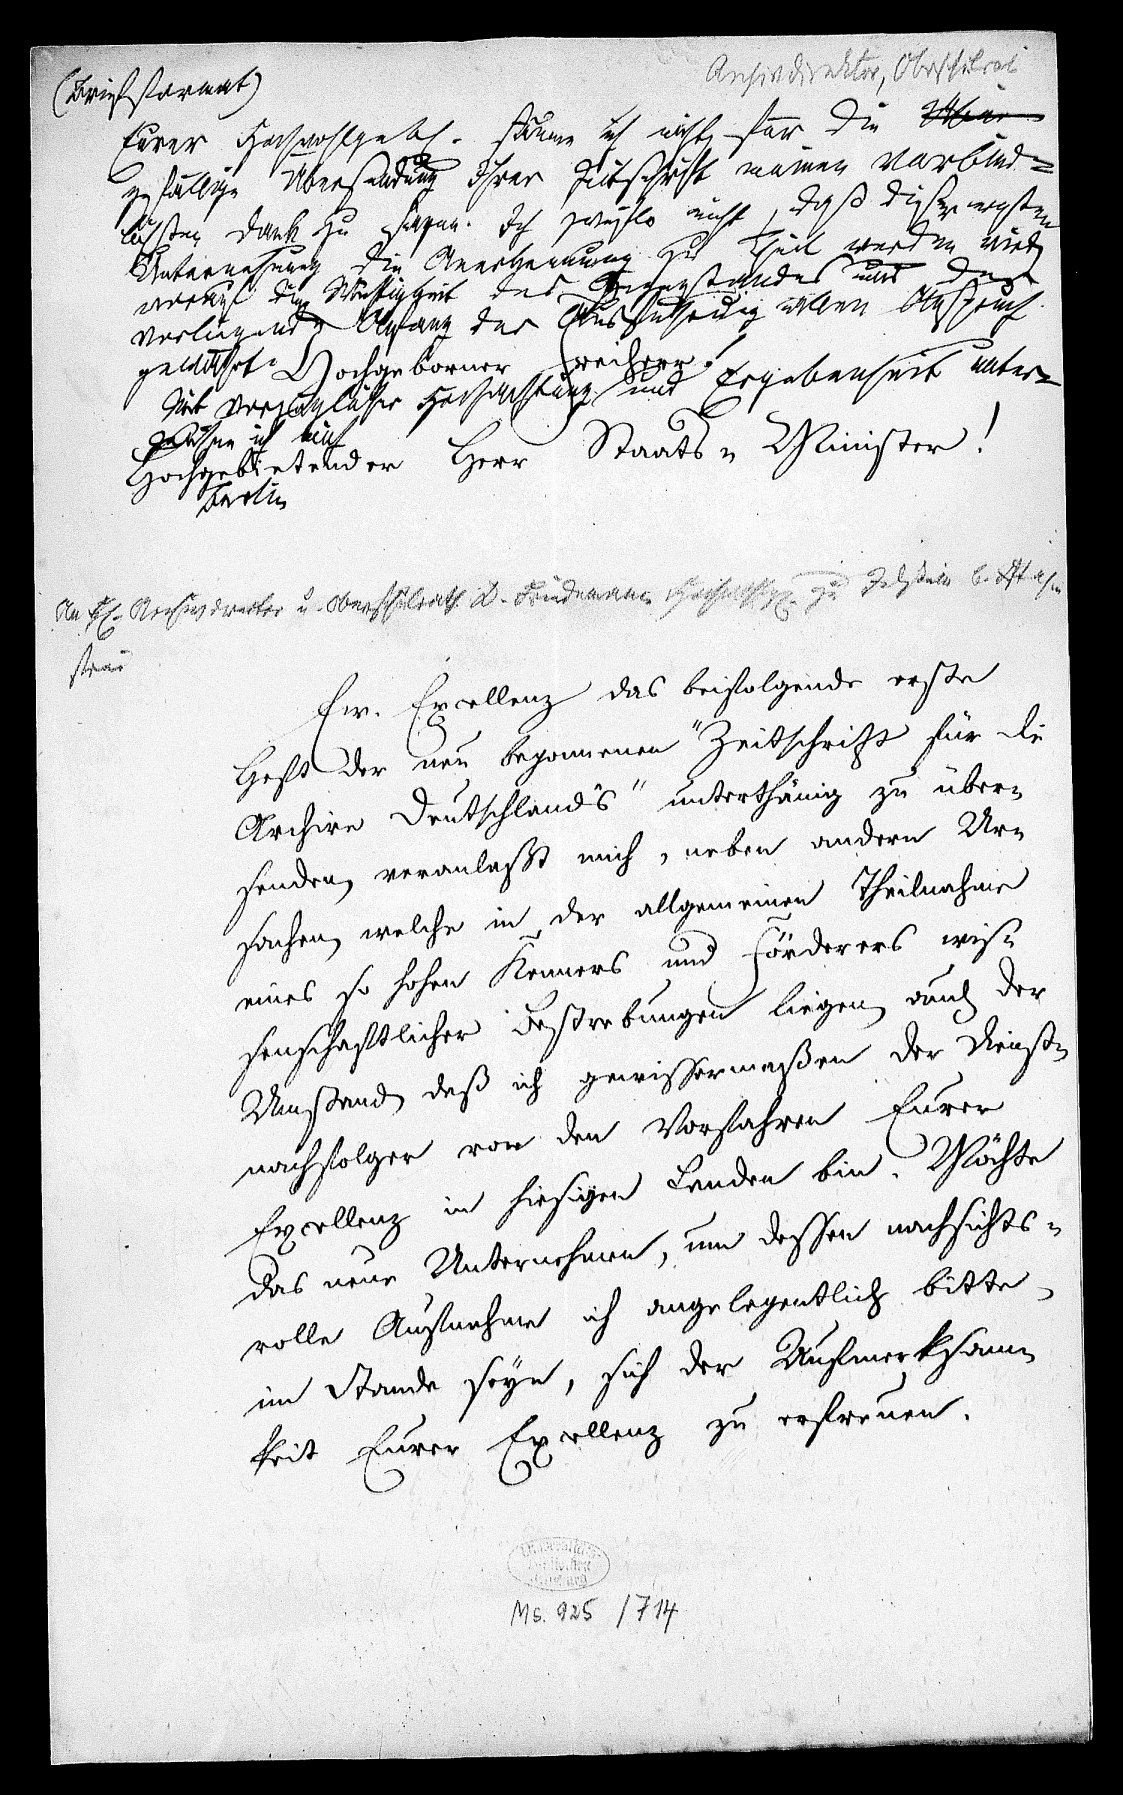 (Briefformat)
Archivdirektor, Oberschulrat
Eurer Hochwohlgeb. säume ich nicht, für die
gefällige Übersendung Ihrer Zeitschrift meinen verbind-
lichsten Dank zu sagen. Ich zweifle nicht, daß dieser ersten
Unternehmung die Anerkennung zu Theil werden wird,
worauf die Wichtigkeit des Gegenstandes und der
vorliegende Anfang der Ausführung allen Anspruch
gewährt.
Hochgeborner Freiherr!
Mit vorzüglicher Hochachtung und Ergebenheit unter-
zeichne ich mich
Hochgebietender Herr Staats-Minister!
Berlin
An H. Archivdirector u. Oberschulrath D. Friedemann Hochwohlg. zu Idstein b.
Ew. Excellenz das beifolgende erste
Heft der neu begonnenen "Zeitschrift für die
Archive Deutschland's" unterthänig zu über-
senden, veranlaßt mich, neben andern Ur-
sachen, welche in der allgemeinen Theilnahme
eines so hohen Kenners und Förderers wis-
senschaftlicher Bestrebungen liegen, auch der
Umstand, daß ich gewissermaßen der Dienst-
nachfolger von den Vorfahren Eurer
Excellenz in hiesigen Landen bin. Möchte
das neue Unternehmen, um dessen nachsichts-
volle Aufnahme ich angelegentlich bitte,
im Stande seyn, sich der Aufmerksam-
keit Eurer Excellenz zu erfreuen.
Ms. 925 /714